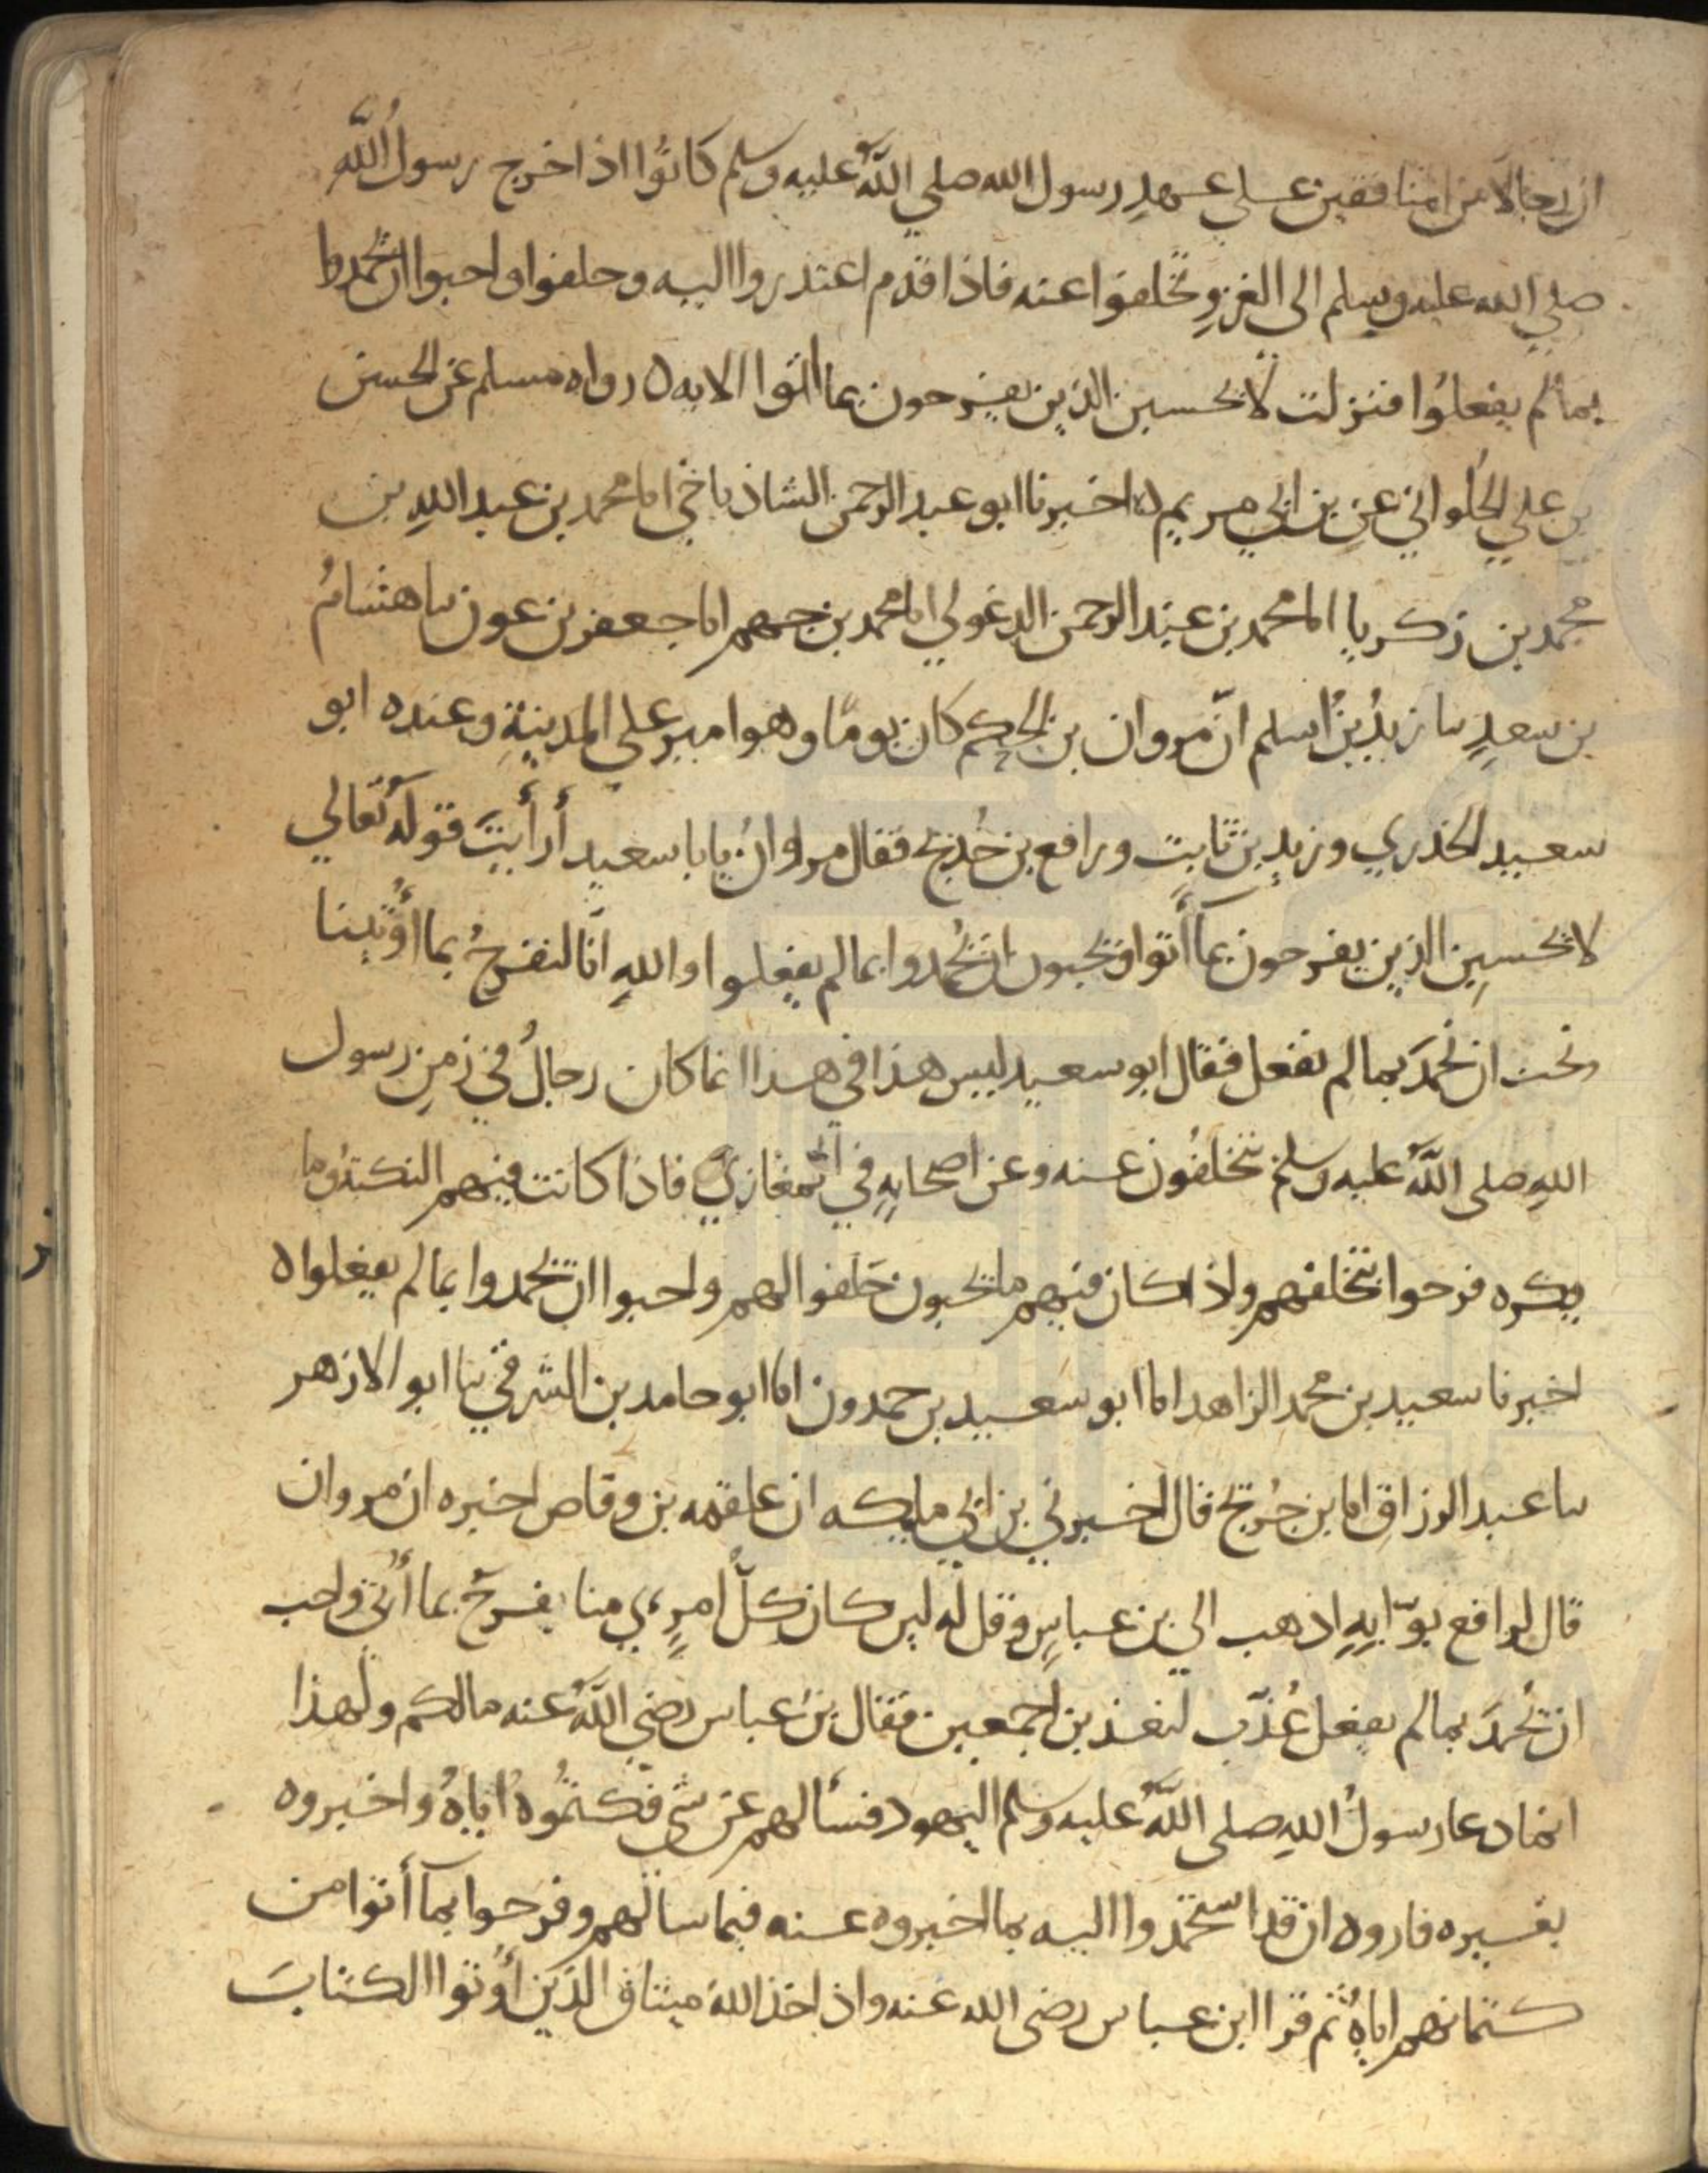 ان رجالا من المنافقين على عهدِ رسول الله صلي اللهُ عليه وسلم كانوُا اذا خرج رسولُ اللّه
صلي الله عليه وسلم الى الغزوِ تخلفوا عنه فاذا قدم اعتذروا اليه وحلفوا واحبوا ان يحمدوا
بما لم يفعلوُا فنزلت لا تحسبن الذين يفرحون بما اتوا الايه ه رواه مسلم عن الحسن
بن علي الحُلواني عن بن ابي مريم ه اخبرنا ابو عبد الرحمن الشاذياخي انا محمد بن عبد اللهِ بن
محمد بن زكريا انا محمد بن عبد الرحمن الدغولي انا محمد بن جهم انا جعفر بن عون سا هشامُ
بن سعدٍ سا زيدُ بنُ اسلم انّ مروان بن الحكم كان يومًا وهو امير على المدينةِ وعنده ابو
سعيد الخدري وزيد بن ثابت ورافع بن خُديج فقال مروانُ يابا سعيد أرأيتَ قوله تعالي
لا تحسبن الذين يفرحون بما أتوا ويحبون ان يُحمدوا بما لم يفعلوا والله انّا لنفرحُ بما أوُتينا
ونحب ان نُحمدَ بما لم نفعل فقال ابو سعيد ليس هذا في هذا انما كان رجالُ في زمنِ رسول
اللهِ صلى اللهُ عليه وسلم يتخلفُون عنه وعن اصحابهِ في المغازي فاذا كانت فيهم النكبةُ وما
يكره فرحوا بتخلفهم واذا كان فيهم ما يحبون حَلفوا لهم واحبوا ان يحمدوا بما لم يفعلوا ه
اخبرنا سعيد بن محمد الزاهد انا ابو سعيد بن حمدون انا ابو حامد بن الشرقي سا ابو الازهر
سا عبد الرزاق انا بن جُريج قال اخبرني بن ابي مليكه ان علقمه بن وقاص اخبره ان مروان
قال لرافع بوّابِهِ اذهب الي بن عباسٍ وقل له لين كان كلُّ امرٍء مي منا يفرحُ بما أُتى واحب
ان يُحمدَ بما لم يفعل عُذّب لنعذبن اجمعين فقال بنُ عباس رضي اللهُ عنه مالكم ولهذا
انما دعا رسولُ اللهِ صلى اللهُ عليه وسلم اليهود فسألهم عن شي فكتمُوهُ اياهُ واخبروه
بغيره فاروه ان قد استحمدوا اليه بما اخبروه عنه فيما سالهم وفرحوا بما أتوا من
كتمانهم اياهُ ثم قرا ابن عباس رضي الله عنه واذ اخذ اللهُ ميثاق الذين أُوتوا الكتابَ